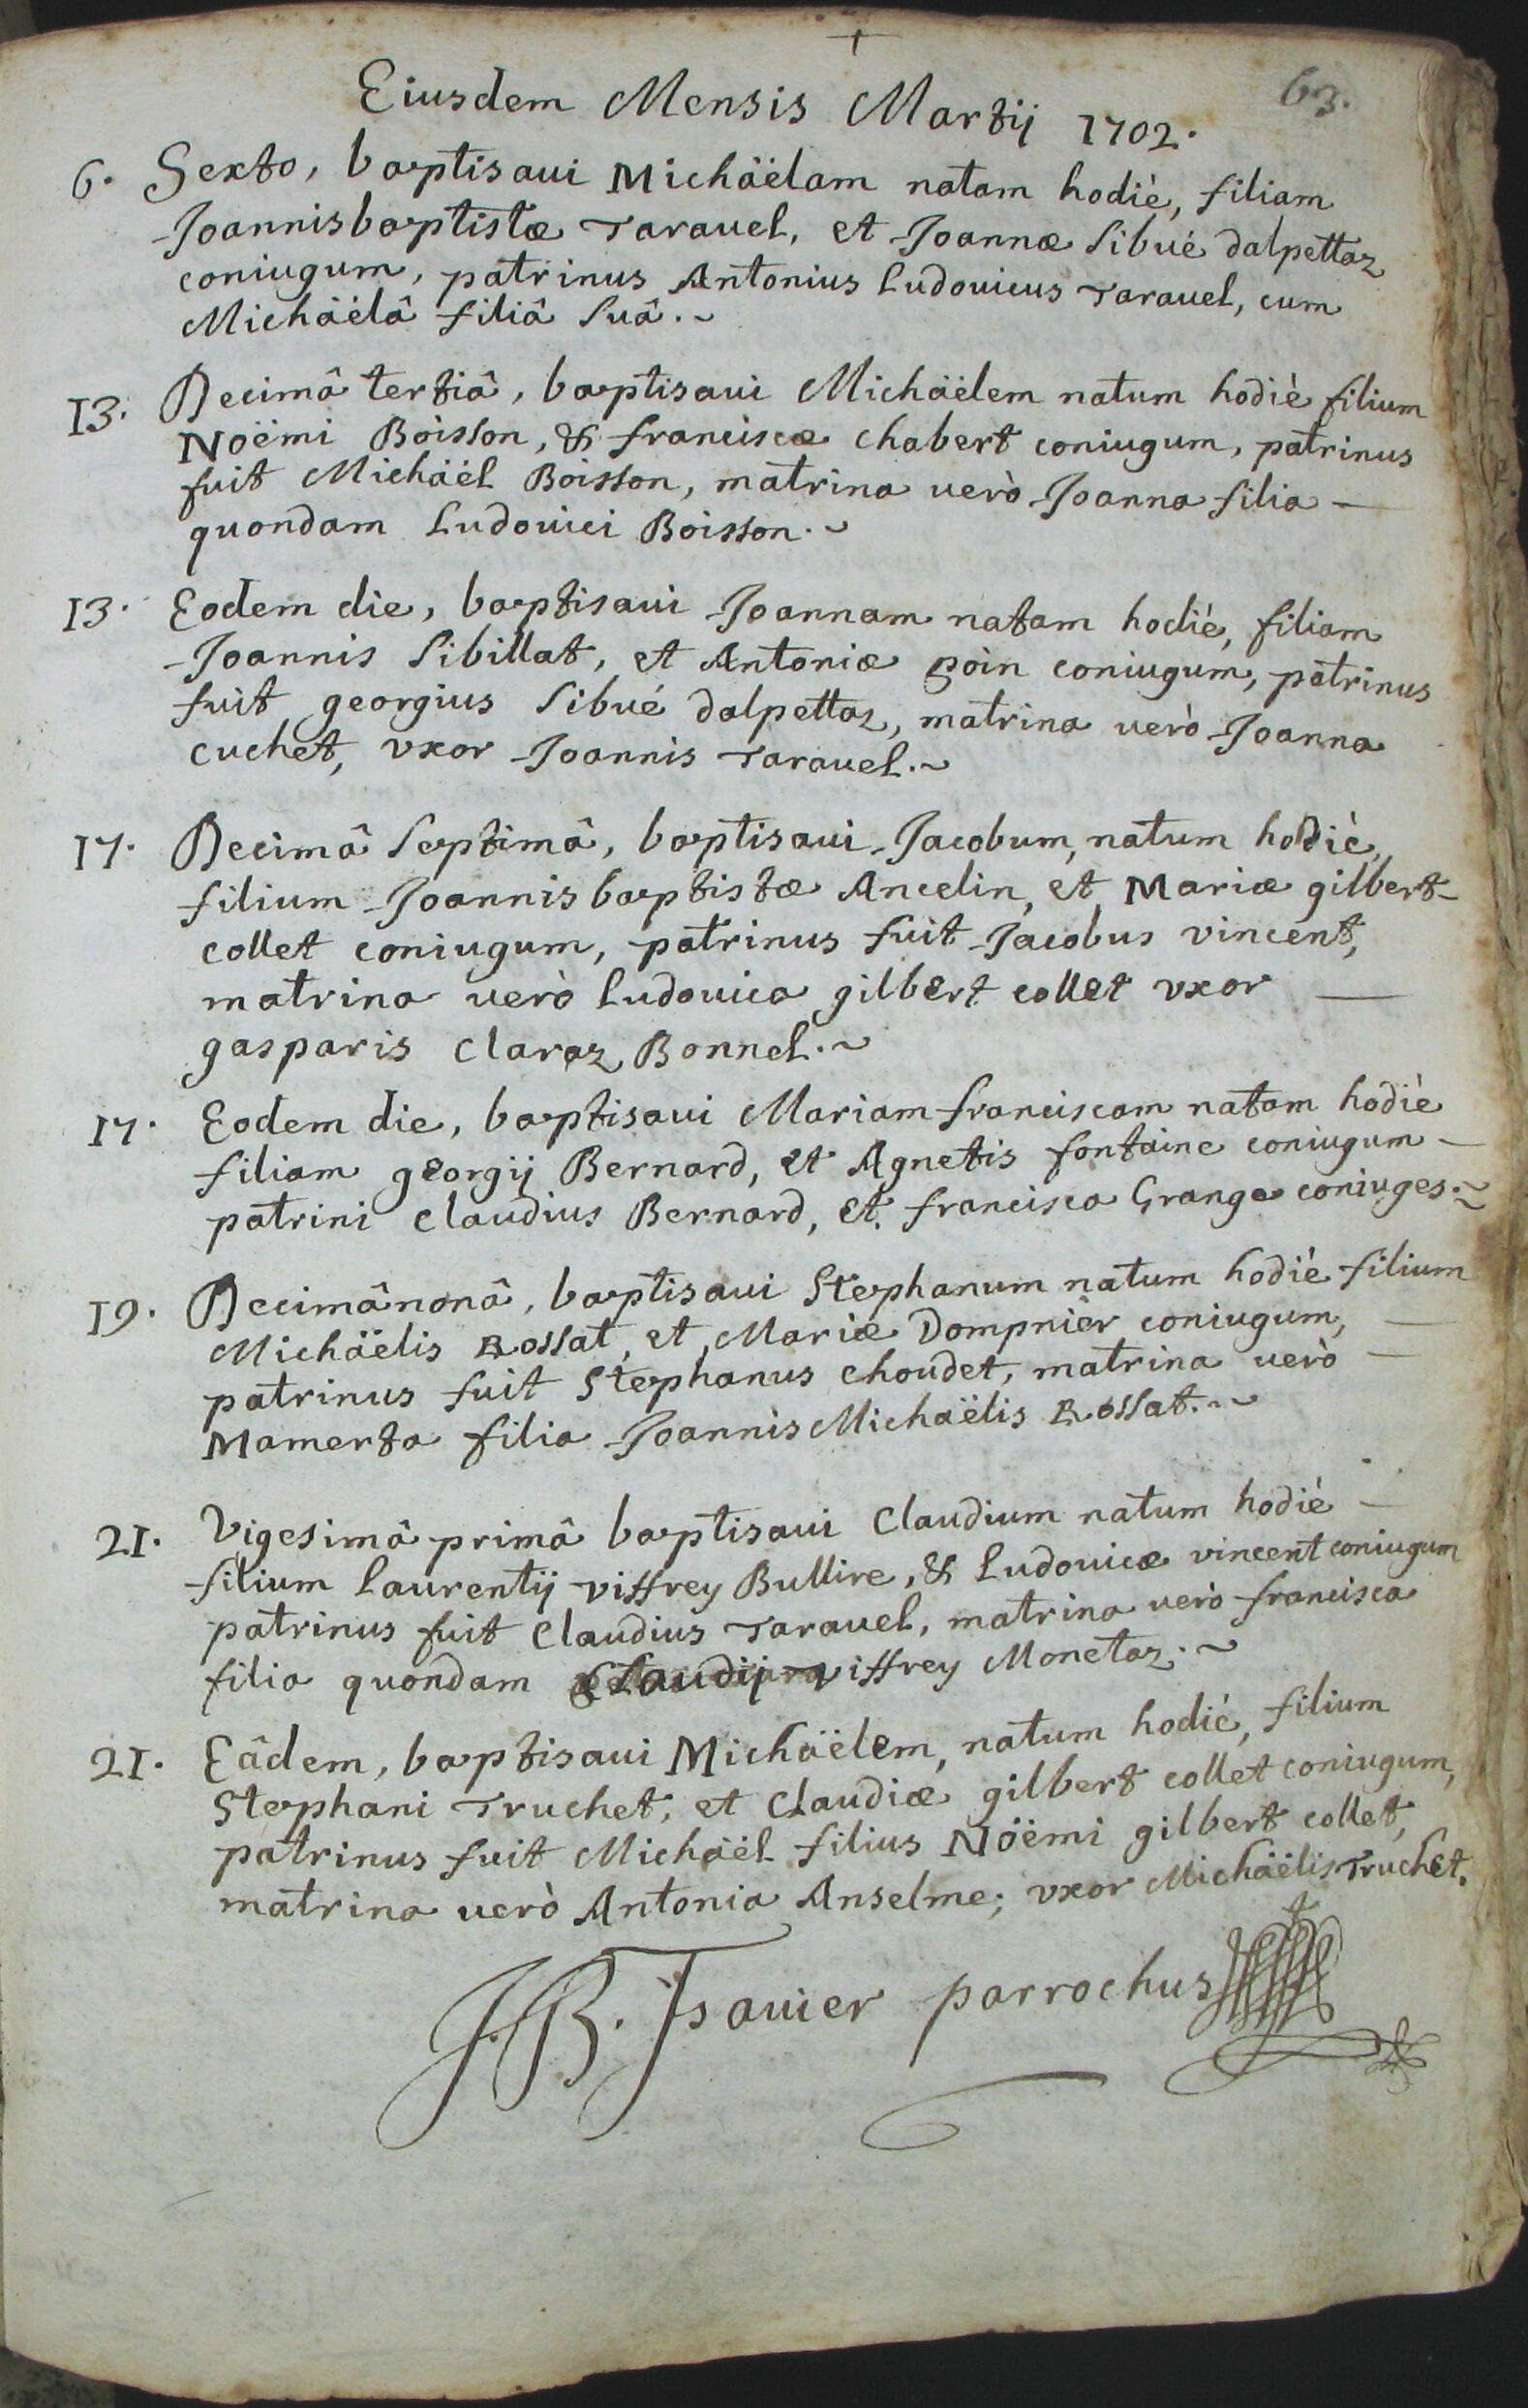 63.
Eiusdem Mensis Martij 1702.
6. Sexto, baptisaui Michäëlam natam hodiè, filiam
Joannisbaptistæ Tarauel, et Joannæ Sibué dalpettaz
coniugum, patrinus Antonius Ludouicus Tarauel, cum
Michäëlâ filiâ suâ.~
13. Decimâ tertiâ, baptisaui Michäëlem natum hodiè filium
Nöëmi Boisson, & franciscæ chabert coniugum, patrinus
fuit Michäël Boisson, matrina uerò Joanna filia —
quondam Ludouici Boisson.~
13. Eodem die, baptisaui Joannam natam hodiè, filiam
Joannis Sibillat, et Antoniæ goin coniugum, patrinus
fuit georgius Sibué dalpettaz, matrina uerò Joanna
cuchet, vxor Joannis Tarauel.~
17. Decimâ septimâ, baptisaui Jacobum, natum hodiè,
filium Joannisbaptistæ Ancelin, et Mariæ gilbert-
collet coniugum, patrinus fuit Jacobus vincent,
matrina uerò Ludouica gilbert collet vxor —
gasparis Claraz Bonnel.~
17. Eodem die, baptisaui Mariamfranciscam natam hodiè
filiam georgij Bernard, et Agnetis fontaine coniugum —
patrini Claudius Bernard, et francisca Grange coniuges.~
19. Decimânonâ, baptisaui Stephanum natum hodiè filium
Michäëlis Rossat, et Mariæ Dompnier coniugum, —
patrinus fuit Stephanus choudet, matrina uerò —
Mamerta filia Joannis Michäëlis Rossat.~
21. Vigesimâ primâ baptisaui Claudium natum hodiè —
filium Laurentij viffrey Bullire, & Ludouicæ vincent coniugum
patrinus fuit Claudius Tarauel, matrina uerò francisca
filia quondam Claudij viffrey Monetaz.~
21. Eâdem, baptisaui Michäëlem, natum hodiè, filium
Stephani Truchet, et Claudiæ gilbert collet coniugum,
patrinus fuit Michäël filius Nöëmi gilbert collet,
matrina uerò Antonia Anselme; vxor Michäëlis Truchet.
J.B. Jsauier parrochus